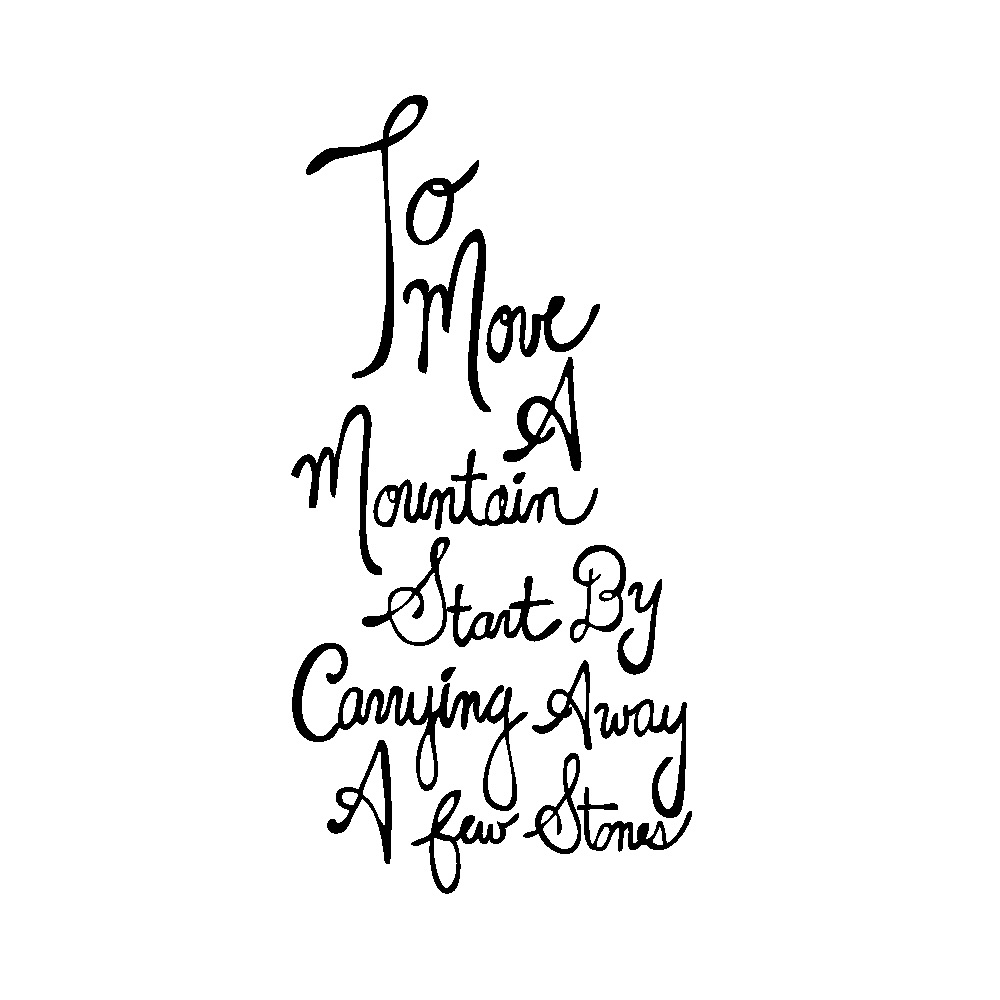 To
Move
A
Mountain
Start By
Carrying Away
A few Stones